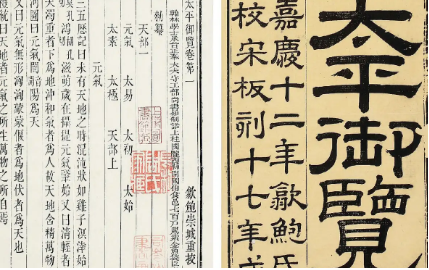 太平御覽
嘉慶十二年歙鮑氏
校宋板刻十七年成
太平御覽卷第一
歙鮑崇城重校
天部一
元氣 太易 太初 太始
太素 太極 天部上
元氣
三五歷記曰未有天地之時混沌狀如雞子溟涬始
濛鴻滋萌歲在攝提元氣肇始又曰清輕者
天濁重者下為地沖和氣者為人故天地含精萬物
河圖曰元氣闓陽為天
又曰元氣無形洶洶蒙蒙偃者為地伏者為天也
統曰天地者元氣之所生萬物之所自焉